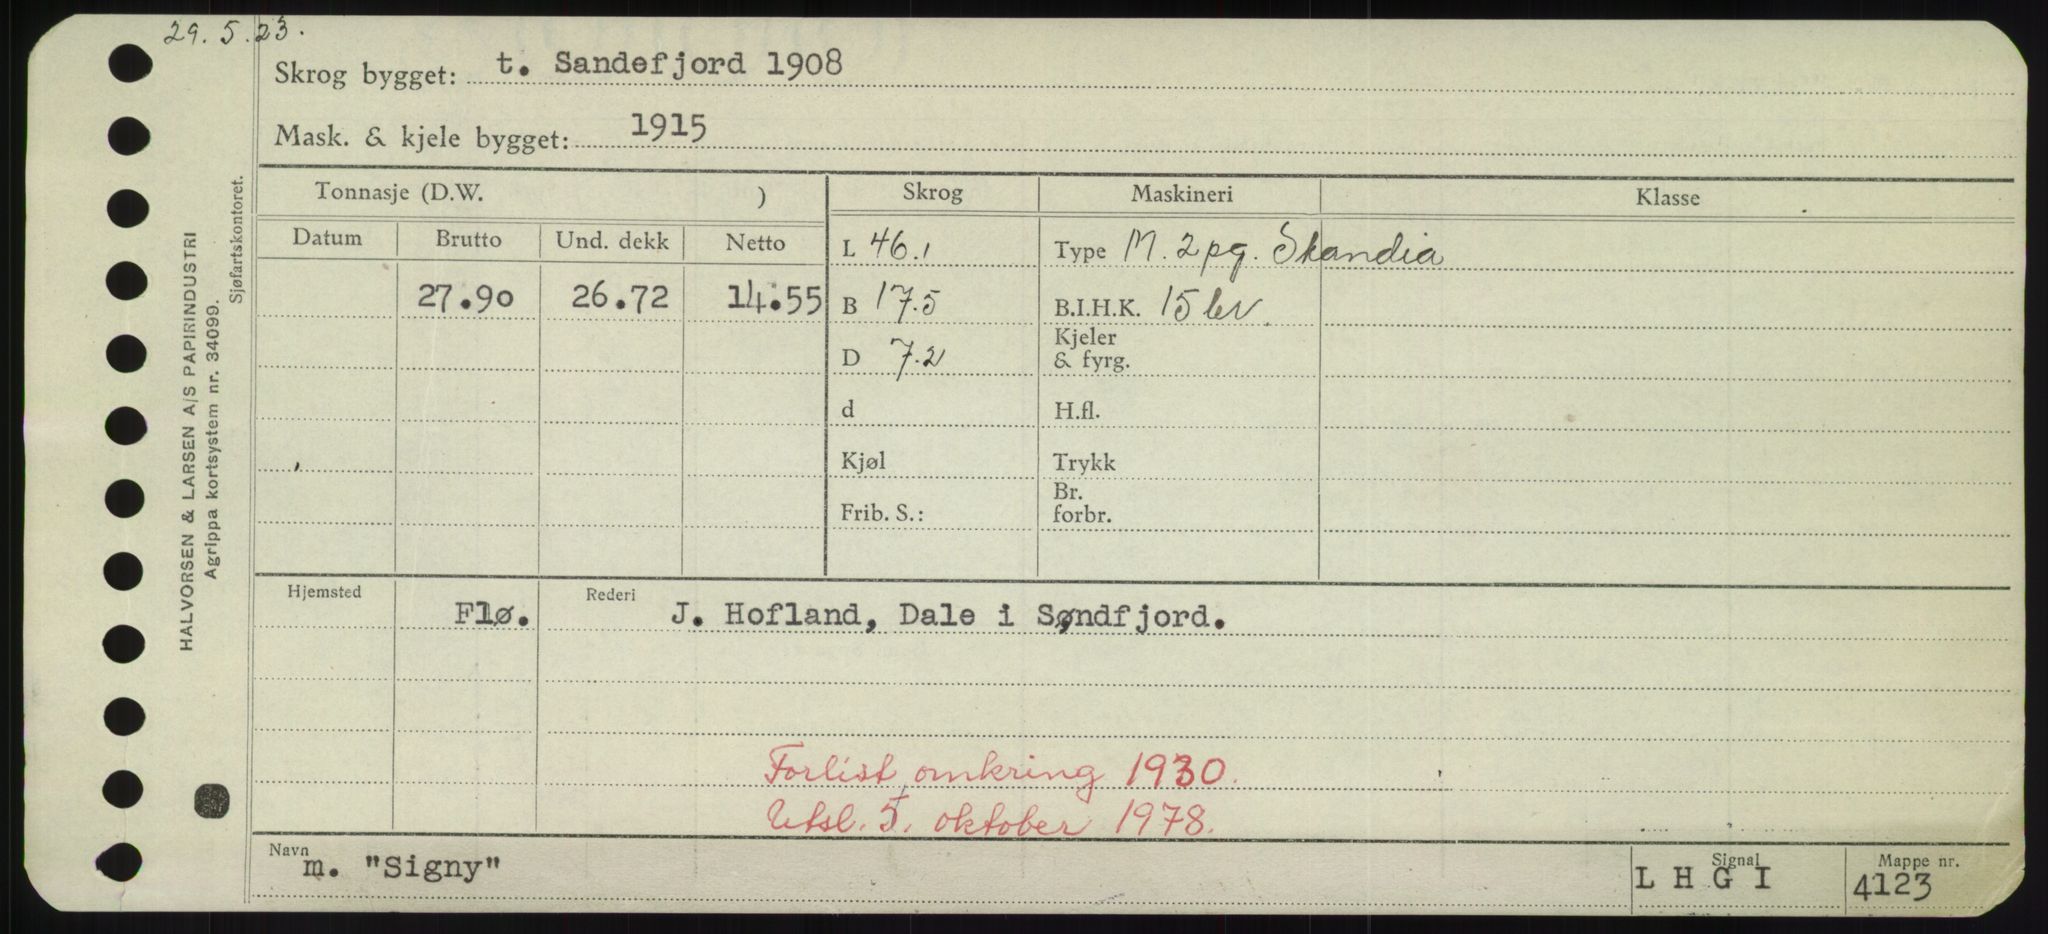 29.5.23.
Skrog bygget: t. Sandefjord 1908
Mask. & kjele bygget: 1915
Tonnasje (D.W. ) Skrog Maskineri Klasse
Datum Brutto Und. dekk Netto
L 46.1 Type M. 2 pg. Skandia
27.90 26.72 14.55 B 17.5 B.I.H.K. 15 kv.
D 7.2 Kjeler
& fyrg.
d H.fl.
Kjøl Trykk
Br.
Frib. S.: forbr.
Hjemsted Flø. Rederi J. Hofland, Dale i Søndfjord.
Forlist omkring 1930.
Utsl. 5. oktober 1978.
Navn m. "Signy" Signal L H G I Mappe nr. 4123
HALVORSEN & LARSEN A/S PAPIRINDUSTRI
Agrippa kortsystem nr. 34099.
Sjøfartskontoret.